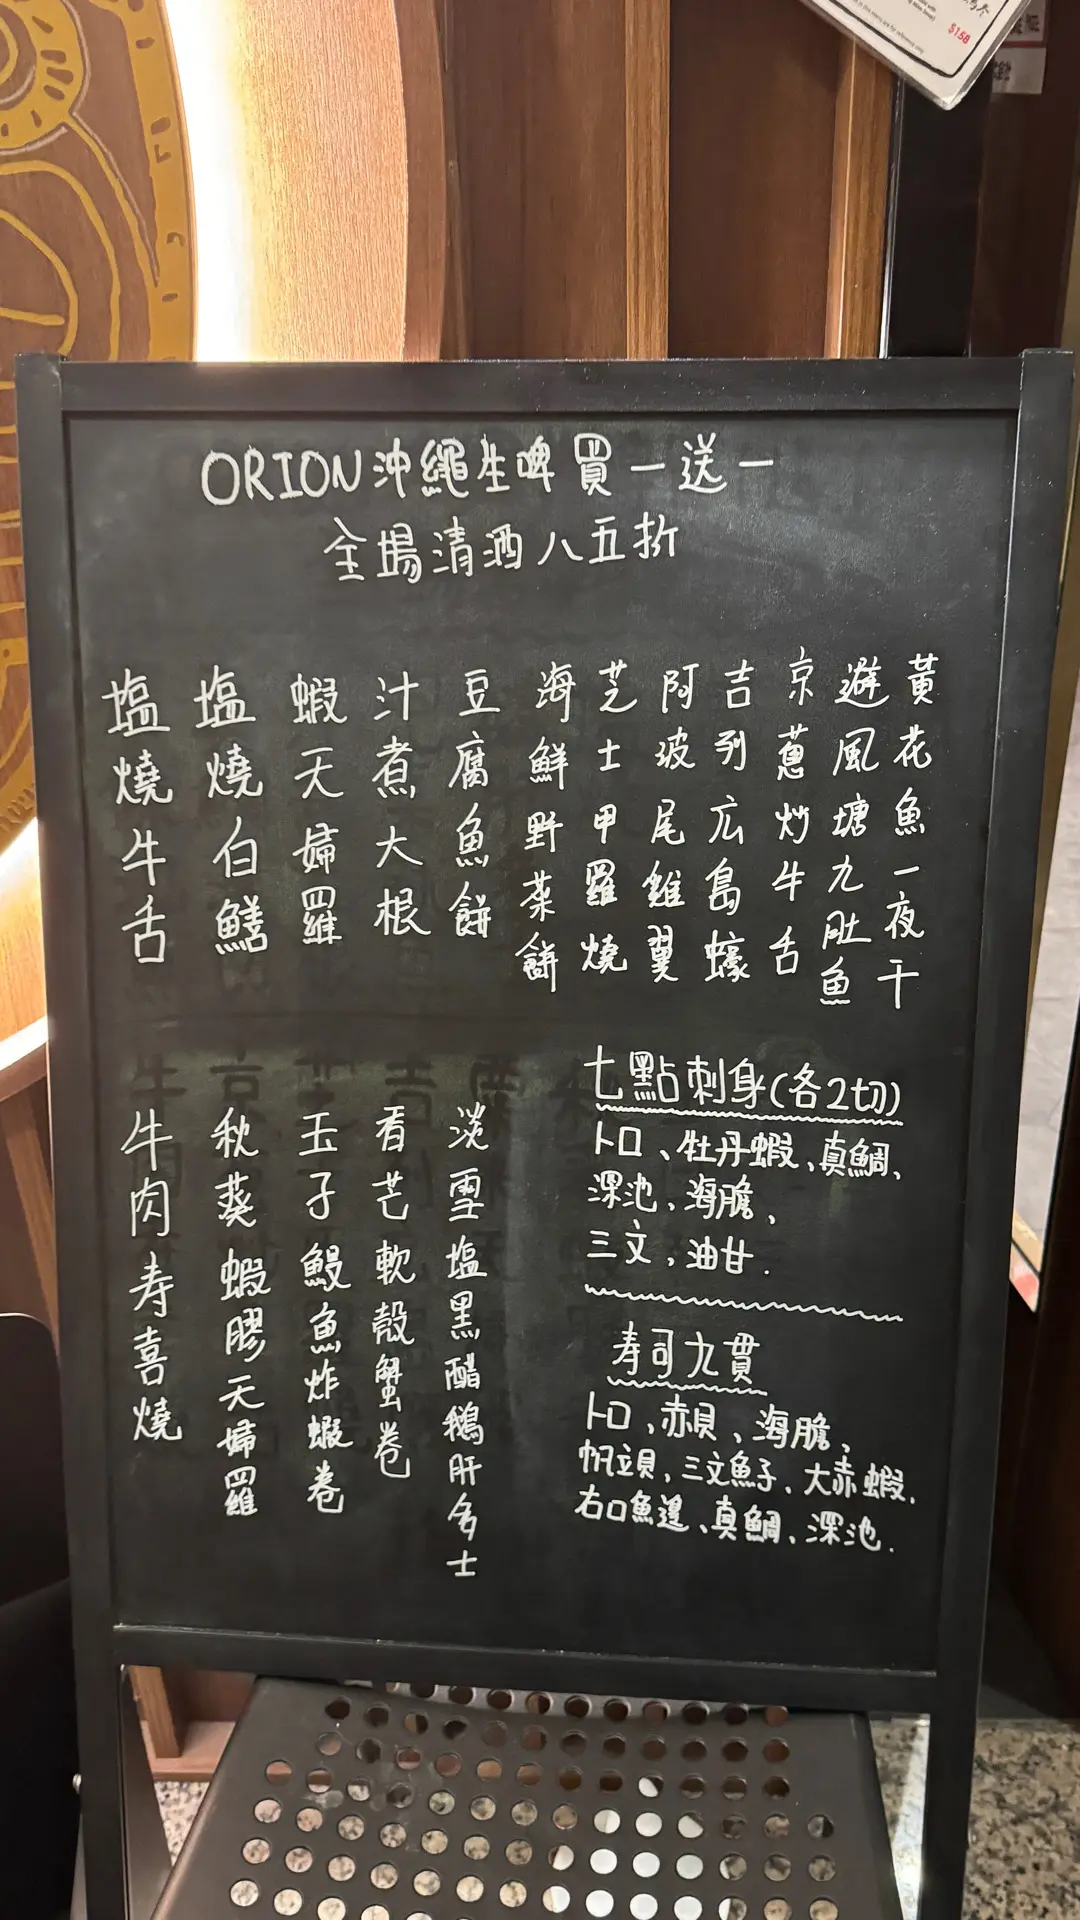 $158
ORION沖繩生啤買一送一
全場清酒八五折
黃花魚一夜干
避風塘九肚魚
京蔥炒牛舌
吉列広島蠔
阿波尾雞翼
芝士甲羅燒
海鮮野菜餅
豆腐魚餅
汁煮大根
蝦天婦羅
塩燒白鱔
塩燒牛舌
七點刺身(各2切)
トロ、牡丹蝦、真鯛、
深池、海膽、
三文、油甘.
寿司九貫
トロ、赤貝、海膽、
帆立貝、三文魚子、大赤蝦、
右口魚邊、真鯛、深池.
淡雪塩黑醋鵝肝多士
香芒軟殼蟹卷
玉子鰻魚炸蝦卷
秋葵蝦膠天婦羅
牛肉寿喜燒